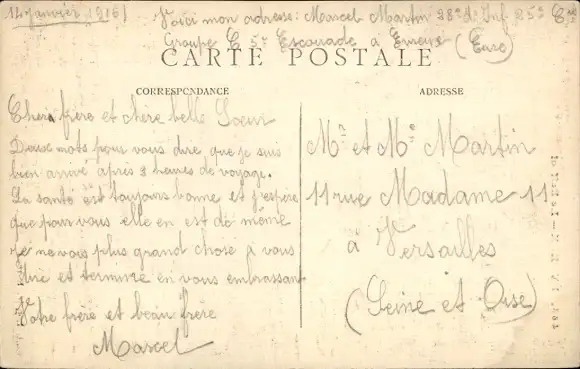 14 janvier 1916
Voici mon adresse: Marcel Martin 28e d'Inf 25e Cie
Groupe C 5e Escouade à Evreux (Eure)
CARTE POSTALE
CORRESPONDANCE
ADRESSE
Chers frère et chère belle Soeur
Deux mots pour vous dire que je suis
bien arrivé après 3 heures de voyage.
La santé est toujours bonne et j'espère
que pour vous elle en est de même
Je ne vois plus grand chose à vous
dire et termine en vous embrassant
Votre frère et beau frère
Marcel
Mr et Me Martin
11 rue Madame 11
à Versailles
(Seine et Oise)